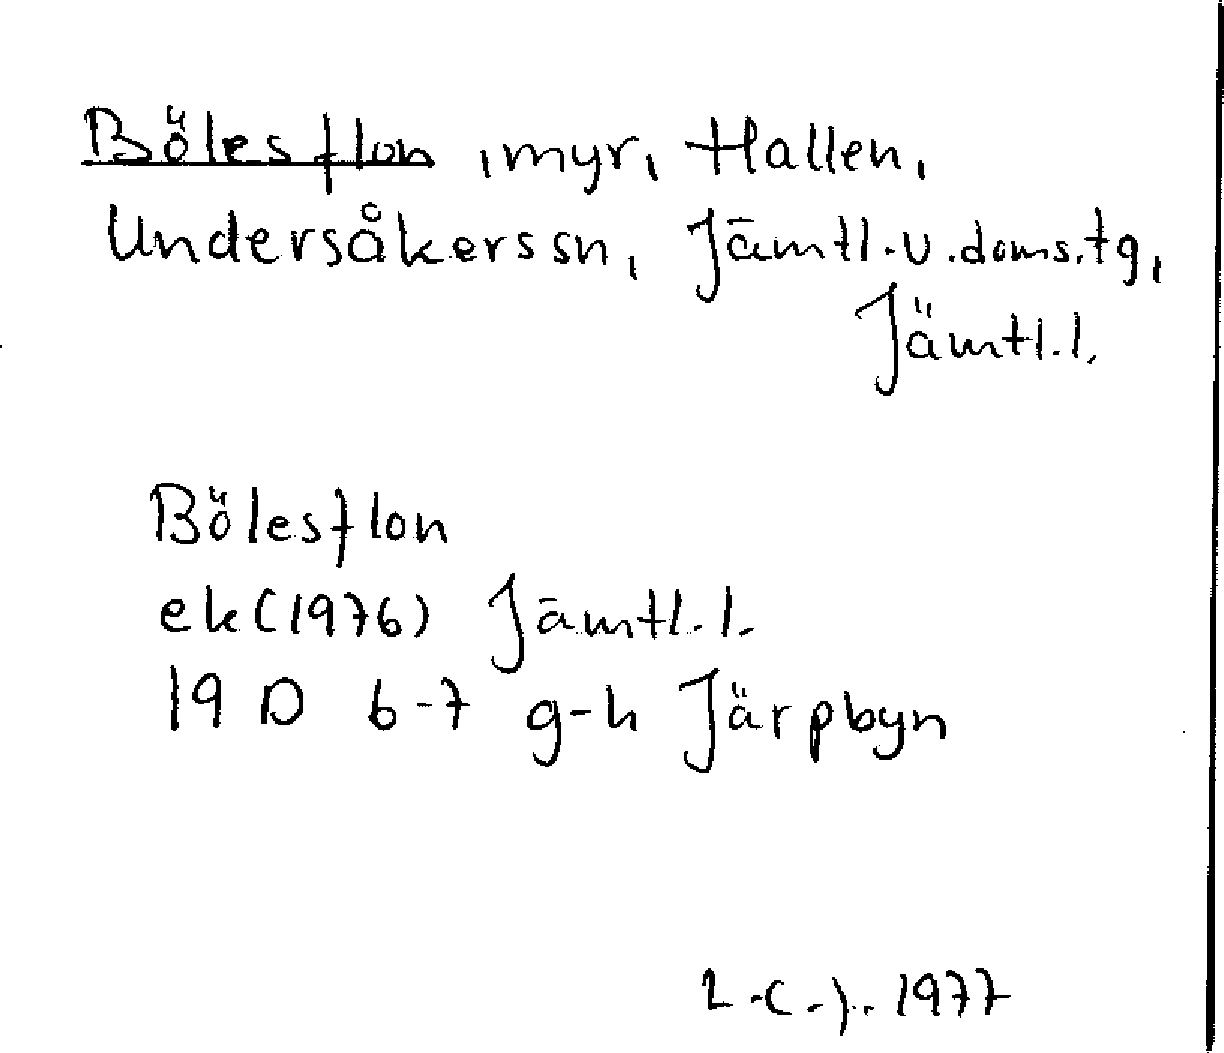 Bölesflon, myr, Hallen,
Undersåkers sn, Jämtl.v.doms.tg,
Jämtl.l.
Bölesflon
ek(1976) Jämtl.l.
19 D 6-7 g-h Järpbyn
L.C.J. 1977